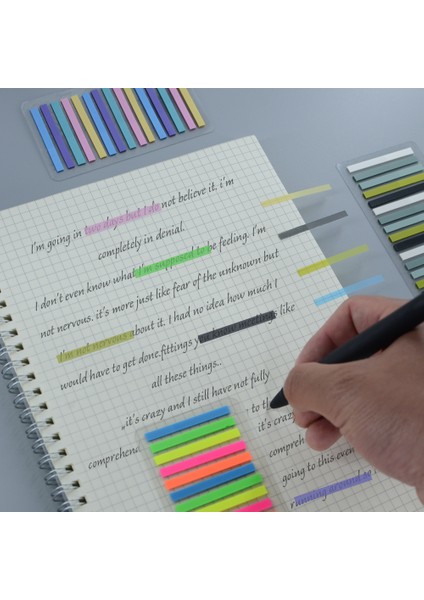 I'm going in two days but I do not believe it. i'm
completely in denial.
I don't even know what I'm supposed to be feeling. I'm
not nervous. it's more just like fear of the unknown but
I'm not nervous about it. I had no idea how much I
would have to get done,fittings you know meetings like
all these things..
„it's crazy and I still have not fully
comprehen
to th
it's crazy
compreh
going to this even
running around to